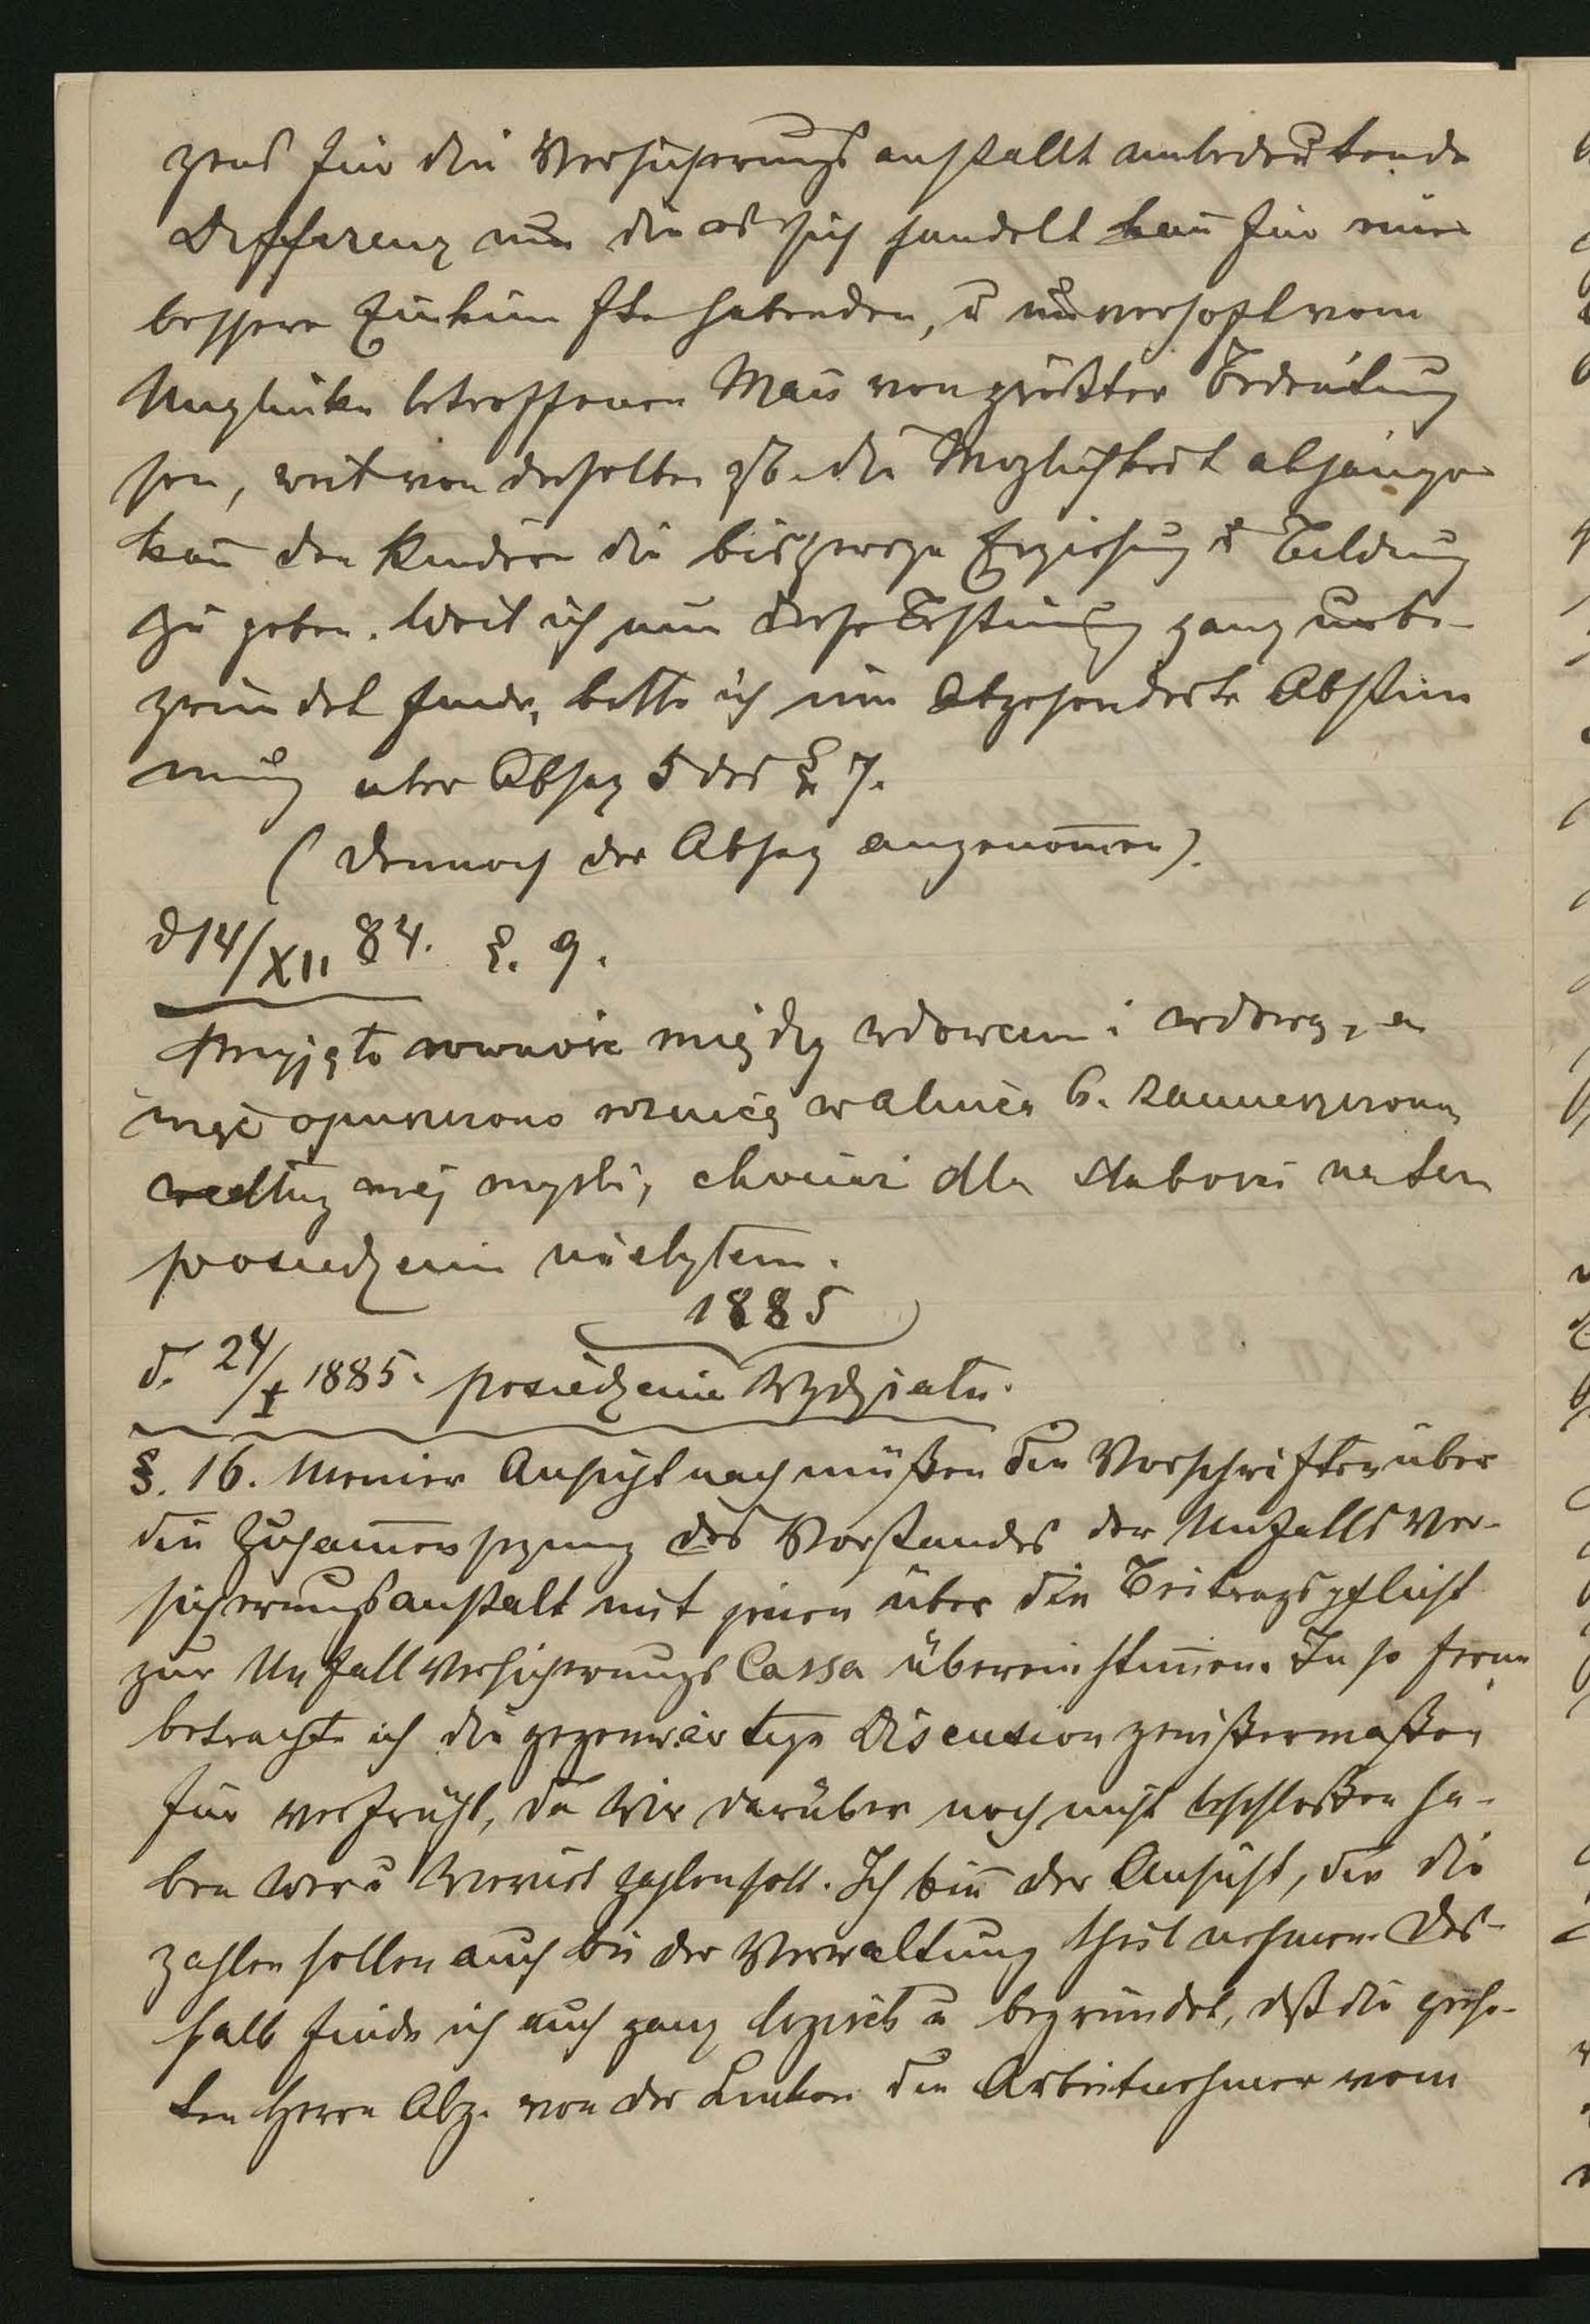 für die Versicherungsanstallt unbedeutende
Differenz um die es sich handelt kan̄ für eine
bessere Einkünfte habenden, u unverhoft vom
Unglücke betroffenen Man̄ von größter Bedeutung
sein, weil von derselben zB. die Möglichkeit abhängen
kan̄ den Kindern die bisherige Erziehung u Bildung
zu geben. Weil ich nun diese Bestim̄ung ganz unbe-
gründet finde, bitte ich um abgesonderte Abstim̄
mung über Absaz 5 des § 7.
( Dennoch der Absaz angenom̄en).
d 14/XII 84. §. 9.
Przyjęto równość między wdowcem i wdową, a
więc opuszczono różnicę w alinea 6. zamieszczoną
według mej myśli, chociaż dla słabości na tem
posiedzeniu nie byłem.
1885
d. 24/I 1885. posiedzenie Wydziału.
§. 16. Meiner Ansicht nach müßen die Vorschriften über
die Zusam̄ensezung des Vorstandes der Unfalls Ver-
sicherungsanstalt mit jenen über die Beitragspflicht
zur Unfall Versicherungs Cassa übereinstim̄en. In so ferne
betrachte ich die gegenwärtige Discusion gewißermaßen
für verfrüht, da wir darüber noch nicht beschloßen ha-
ben wer u wieviel zahlen soll. Ich bin̄ der Ansicht, die die
zahlen sollen auch bei der Verwaltung theil nehmen. Des-
halb finde ich auch ganz logisch u begründet, daß die geehr-
ten Herrn Abg. von der Linken die Arbeitnehmer vom